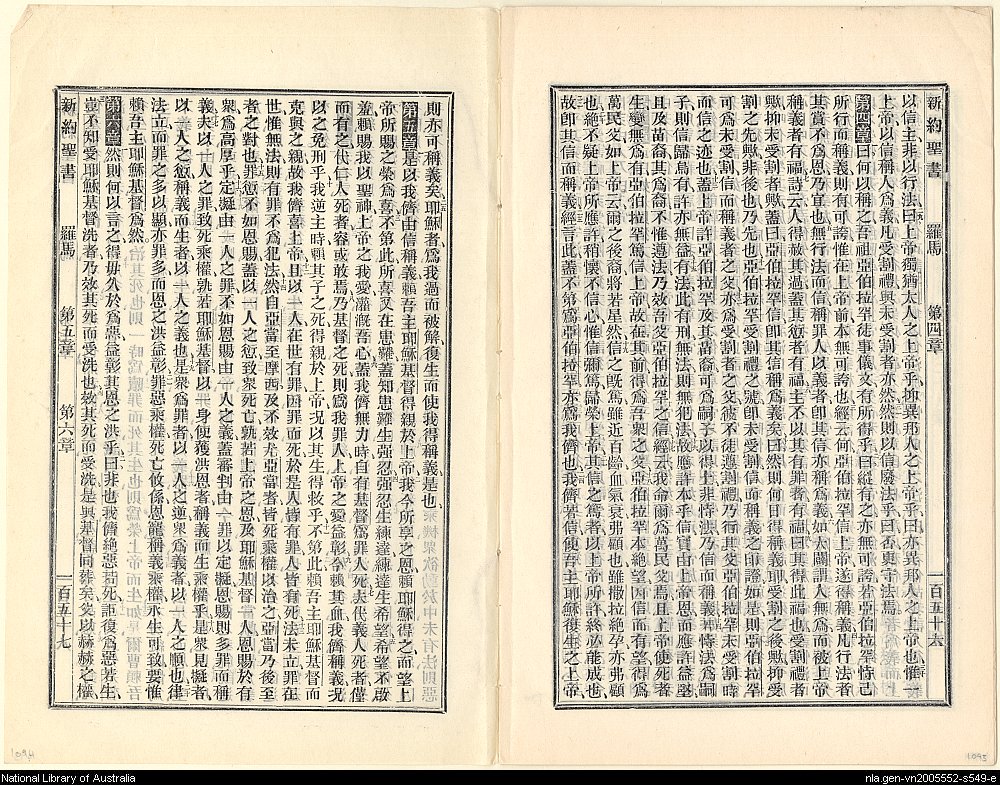 新約聖書 羅馬 第四章 一百五十六
以信主非以行法曰上帝獨猶太人之上帝乎抑異邦人之上帝乎曰亦異邦人之上帝也惟一
上帝以信稱人爲義凡受割禮與未受割禮者亦然然則以信廢法乎曰否更守法焉
第四章曰何以稱之吾祖亞伯拉罕徒事儀文有所得乎曰縱有之亦無可誇若亞伯拉罕恃己
所行而稱義則有可誇惟在上帝前本無可誇也經云何亞伯拉罕信上帝遂得稱義凡行法者
其賞不爲恩乃宜也無行法而信稱罪人以義者卽其信亦稱爲義如大闢謂人無爲而被上帝
稱義者有福詩云人得赦其過蓋其愆者有福主不以其有罪者有福曰其得此福也受割禮者
歟抑未受割者歟蓋曰亞伯拉罕信卽其信稱爲義矣曰然則何日得稱義耶受割禮之後歟抑受
割之先歟非後也乃先也亞伯拉罕受割禮之號卽未受割信而稱義之印證如是則亞伯拉罕
可爲未受割信而稱義者之父亦爲受割者之父彼不徒遵割禮乃行其父亞伯拉罕未受割時
而信之迹也蓋上帝許亞伯拉罕及其苗裔可爲嗣子以得土非恃法乃信而稱義若恃法爲嗣
子則信歸烏有許亦無益有法此有刑無法則無犯法故應許本乎信實由上帝恩而應許益堅
且及苗裔其爲裔不惟遵法乃效吾父亞伯拉罕之信經云我命爾爲萬民父焉且上帝使死者
生變無爲有亞伯拉罕信之在其前得爲吾衆之父亞伯拉罕本絶望而有望因信得爲
萬民父如上帝云爾之後裔將若星然信之旣篤雖近百齡血氣衰弗顧也雖撒拉絶孕亦弗顧
也絶不疑上帝所應許稍懷不信心惟信彌篤歸榮上帝其信之篤者以上帝所許終必能成也
故卽其信而稱義經言此蓋不第爲亞伯拉罕亦爲我儕也我儕若信使吾主耶穌復生之上帝
則亦可稱義矣耶穌者爲我過而被解復生而使我得稱義是也
第五章是以我儕由信稱義賴吾主耶穌基督得親於上帝我今所享之恩賴耶穌得之而望上
帝所賜之榮爲喜不第此所喜又在患難蓋知患難生强忍强忍生練達練達生希望希望不啟
羞賴賜我以聖神上帝之愛灌漑吾心蓋我儕無力時自有基督爲罪人死夫代義人死者僅
而有之代仁人死者容或敢焉乃基督之死則爲我罪人上帝之愛益彰今賴其血我儕稱義况
以之免刑乎我逆主時賴其子之死得親於上帝况以其生得救乎不第此賴吾主耶穌基督而
克與之親故我儕喜上帝且以一人在世有罪因罪而死於是人皆有罪人皆有死法未立罪在
世惟無法則有罪不爲犯法然自亞當至摩西及不效尤亞當者皆死乘權以治之亞當乃後至
者之對也罪愆不如恩賜蓋以一人之愆致衆死亡孰若上帝之恩及耶穌基督一人恩賜於有
衆爲高厚乎定擬由一人之罪不如恩賜由一人之義蓋審判由一罪以定擬恩賜則多罪而稱
義夫以一人之罪致死乘權孰若耶穌基督以一身使獲洪恩者稱義而生乘權乎是衆見擬者
以一人之愆稱義而生者以一人之義也是衆爲罪者以一人之逆衆爲義者以一人之順也律
法立而罪之多以顯亦罪多而恩之洪益彰罪惡乘權死亡攸係恩寵稱義乘權永生可致要惟
賴吾主耶穌基督爲然
第六章然則何以言之得毋久於爲惡益彰其恩之洪乎曰非也我儕絶惡若死詎復爲惡若生
豈不知受耶穌基督洗者乃效其死而受洗也效其死而受洗是與基督同葬矣父以赫赫之權
新約聖書 羅馬 第五章 第六章 一百五十七
1094
1095
National Library of Australia
nla.gen-vn2005552-s549-e